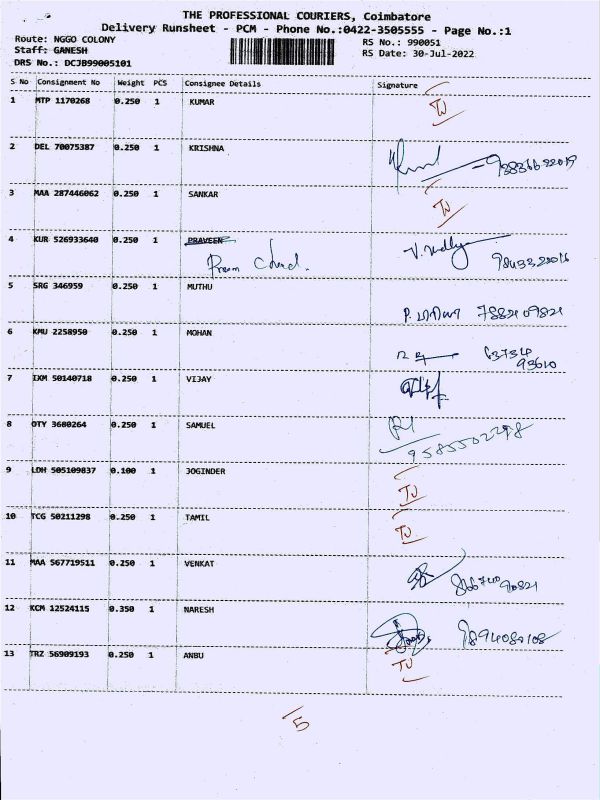 THE PROFESSIONAL COURIERS, Coimbatore
Delivery Runsheet - PCM - Phone No.:0422-3505555 - Page No.:1
Route: NGGO COLONY
RS No.: 990051
Staff: GANESH
RS Date: 30-Jul-2022
DRS No.: DCJB99005101
S No Consignment No Weight PCS Consignee Details Signature
1 MTP 1170268 0.250 1 KUMAR
2 DEL 70075387 0.250 1 KRISHNA
3 MAA 287446062 0.250 1 SANKAR
4 KUR 526933640 0.250 1 PRAVEEN
5 SRG 346959 0.250 1 MUTHU
6 KMU 2258950 0.250 1 MOHAN
7 IXM 50140718 0.250 1 VIJAY
8 OTY 3680264 0.250 1 SAMUEL
9585502298
9 LDH 505109837 0.100 1 JOGINDER
10 TCG 50211298 0.250 1 TAMIL
11 MAA 567719511 0.250 1 VENKAT
12 KCM 12524115 0.350 1 NARESH 9894080108
13 TRZ 56909193 0.250 1 ANBU
5